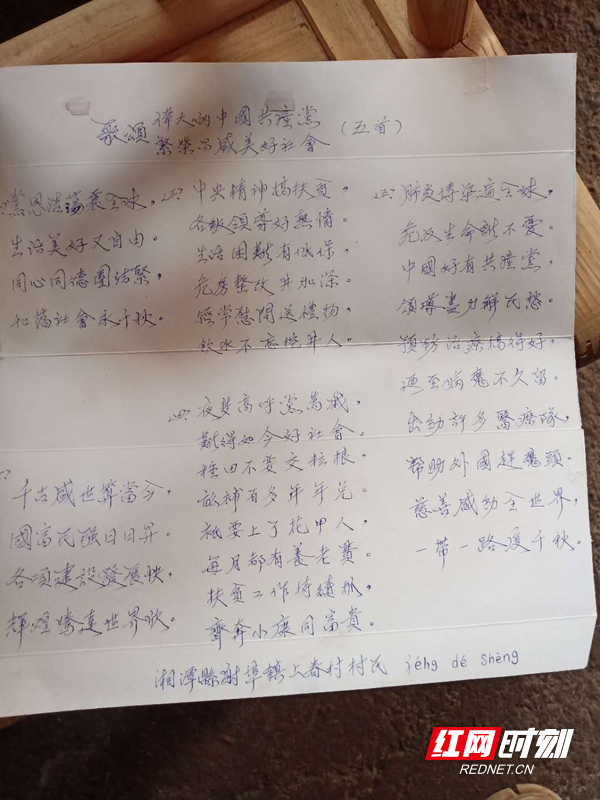 歌頌
偉大的中國共產黨
繁榮昌盛美好社會
（五首）
黨恩浩蕩震全球，
生活美好又自由。
同心同德團結緊，
和諧社會永千秋。
千古盛世算當今，
國富民強日日昇。
各項建設發展快，
輝煌騰達世界欽。
三：中央精神搞扶貧，
各級領導好熱情。
生活困難有低保，
危房整改井加深。
經常慰問送禮物，
飲水不忘挖井人。
四：夜梦高呼黨萬歲，
難得如今好社會。
種田不要交粒糧，
畝補百多年年兌。
祇要上了花甲人，
每月都有養老費。
扶貧工作持續抓，
齊奔小康同富貴。
五：肺炎傳染全球，
危及生命誰不憂。
中國好有共產黨，
領導盡力解民愁。
預防治療搞得好，
逼至病魔不久留。
出動許多醫療隊，
幫助外國趕魔頭。
慈善感動全世界，
一帶一路千秋。
湘潭縣射埠鎮上春村村民 dé shèng
红网时刻
REDNET.CN